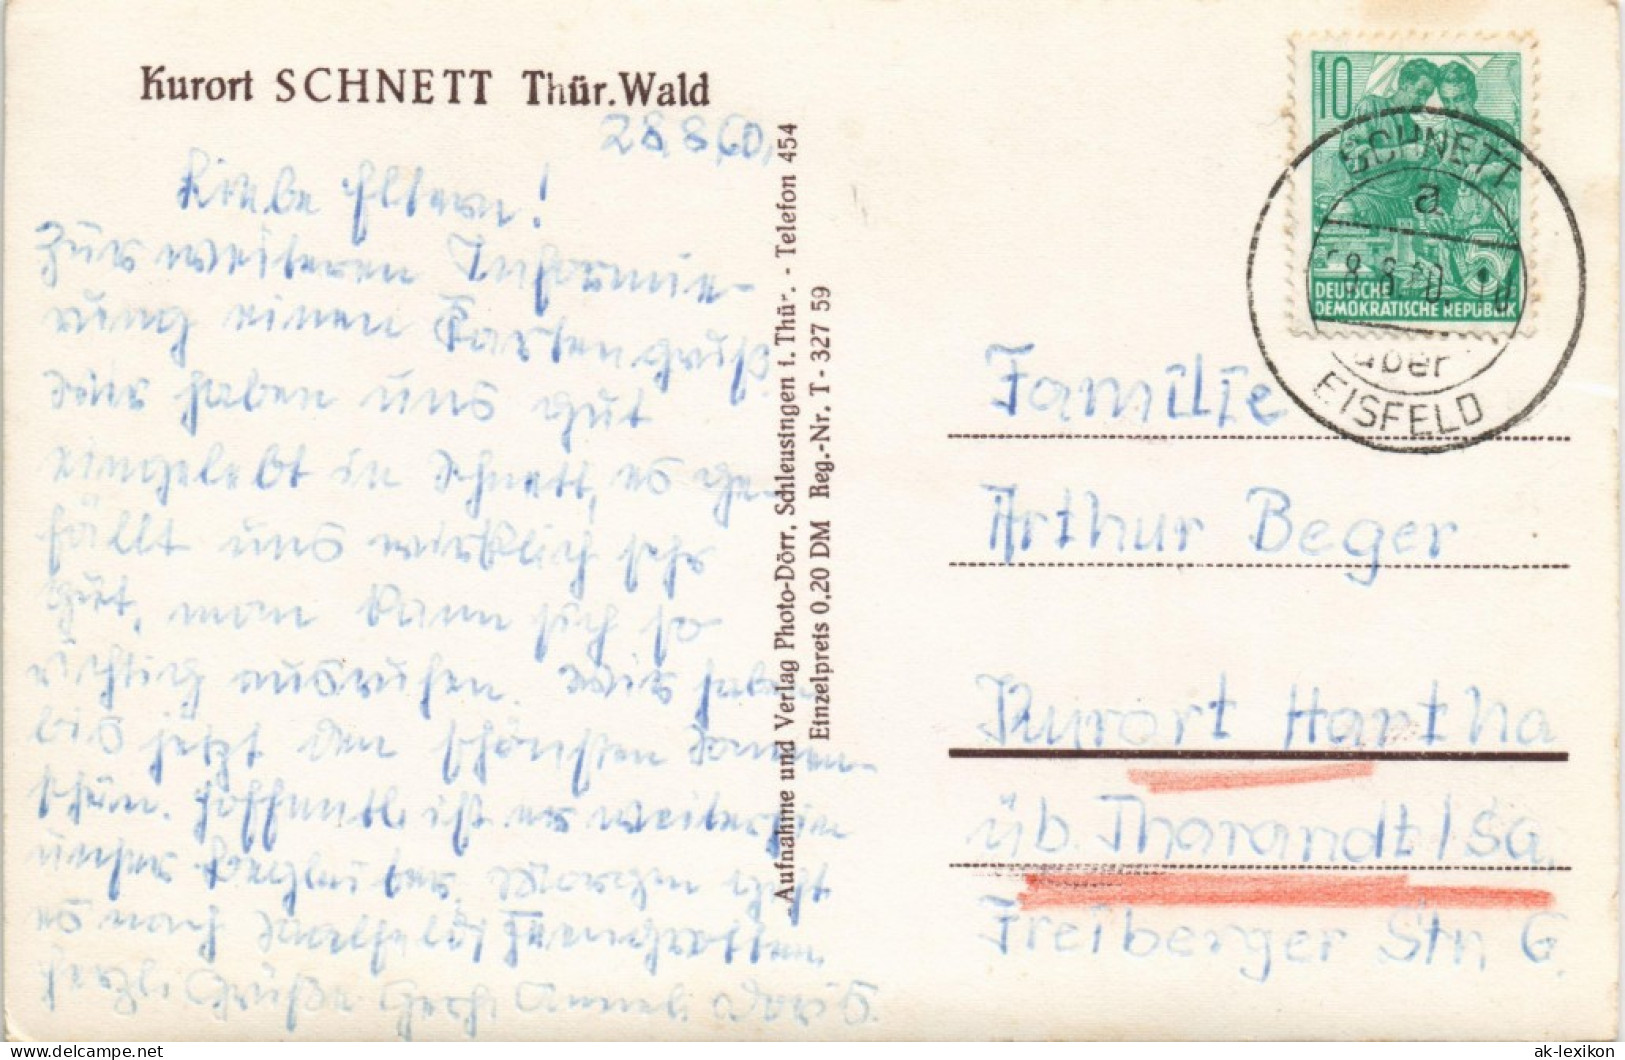 Kurort SCHNETT Thür. Wald
28.8.60.
Liebe Eltern!
Zur weiteren Informie-
rung einen Kartengruß.
Wir haben uns gut
eingelebt in Schnett, es ge-
fällt uns wirklich sehr
gut, man kann sich so
richtig ausruhen. Wir haben
bis jetzt den schönsten Sonnen-
schein. Hoffentl. ist er weiterhin
unser Begleiter. Morgen geht
es nach Saalfeld Feengrotten
herzl. Grüße
Aufnahme und Verlag Photo-Dörr, Schleusingen i. Thür. - Telefon 454
Einzelpreis 0,20 DM Reg.-Nr. T - 327 59
10
5
DEUTSCHE
DEMOKRATISCHE REPUBLIK
SCHNETT
a
über
EISFELD
Familie
Arthur Beger
Kurort Hartha
üb. Tharandt/Sa.
Freiberger Str.
ak-lexikon